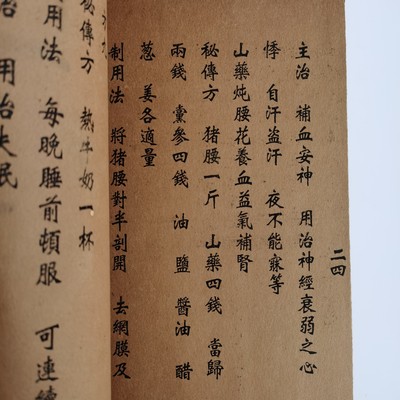 二四
主治 補血安神 用治神經衰弱之心
悸 自汗盜汗 夜不能寐等
山藥炖腰花養血益氣補腎
秘傳方 猪腰一斤 山藥四錢 當歸
兩錢 黨參四錢 油 鹽 醬油 醋
葱 姜各適量
制用法 將猪腰對半剖開 去網膜及
秘傳方 熱牛奶一杯
用法 每晚睡前頓服 可連續
治 用治失眠